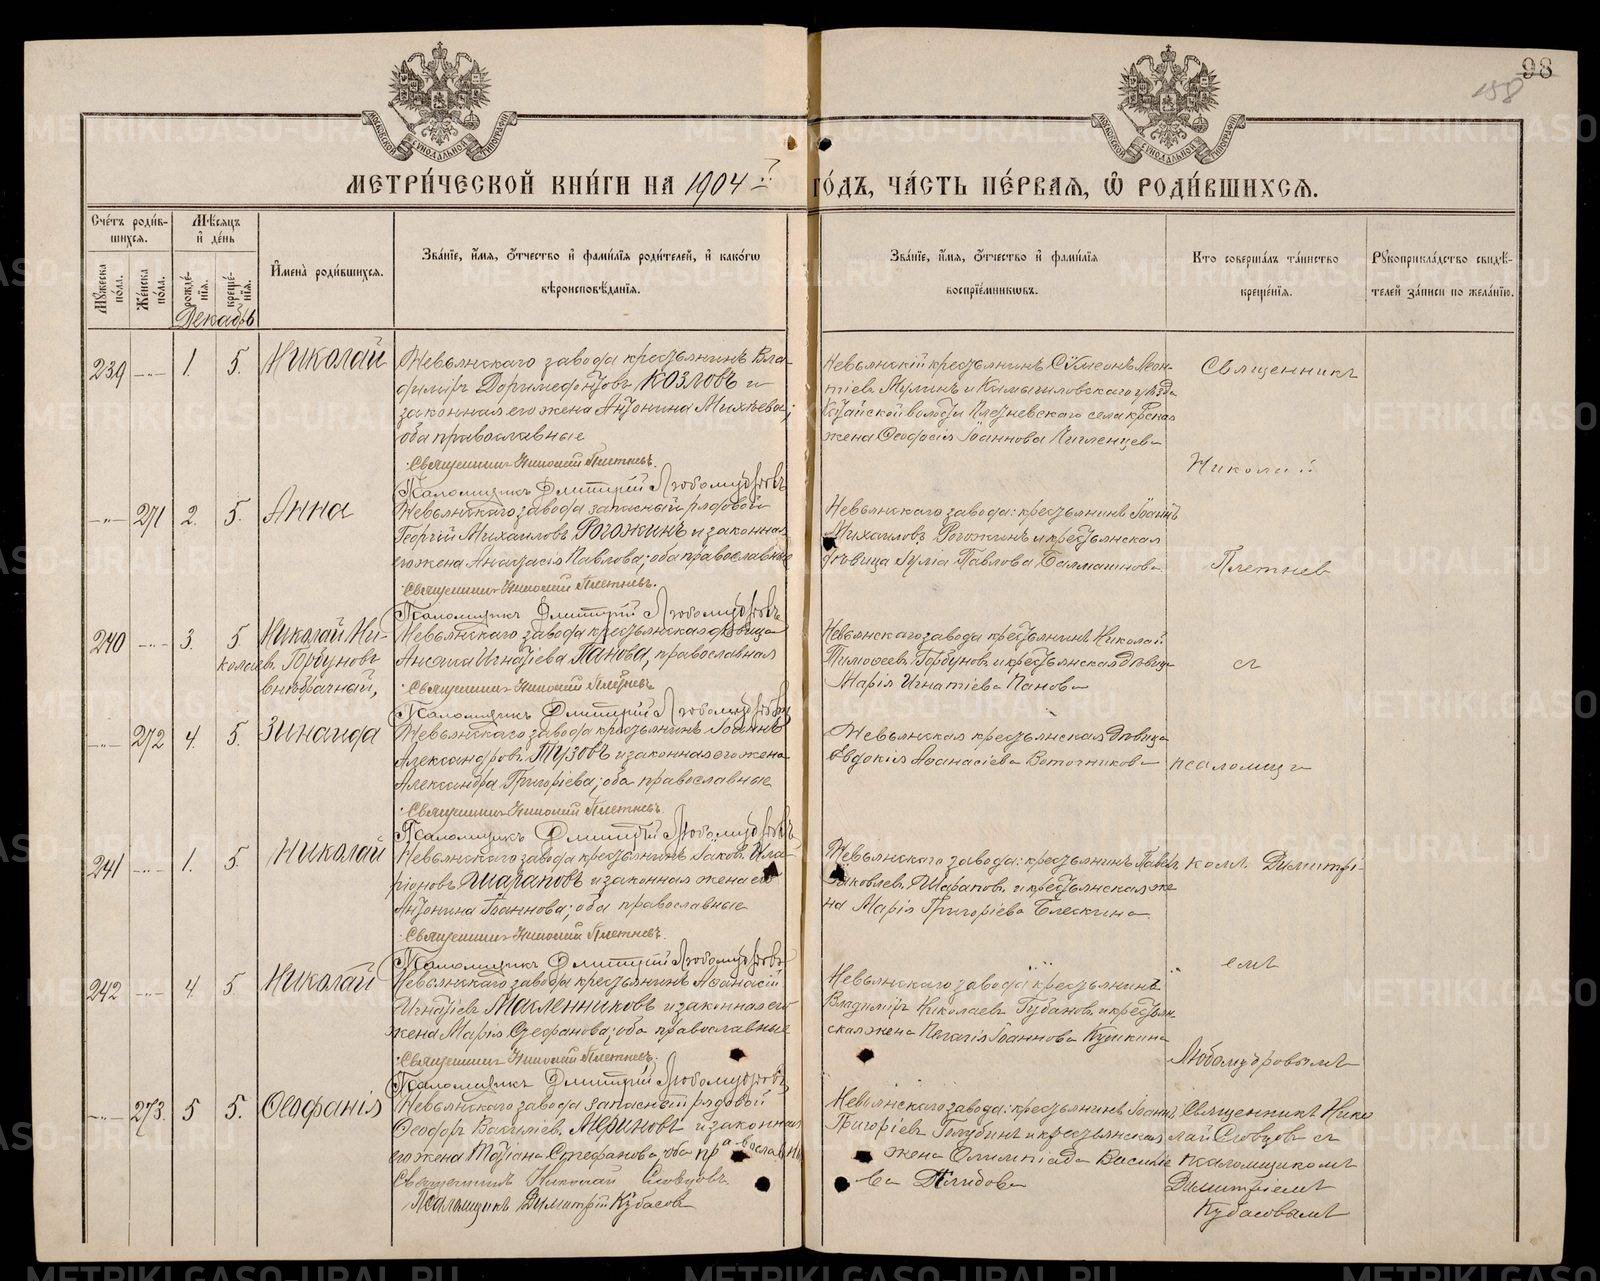 98
158
МЕТРИ́ЧЕСКОЙ КНИ́ГИ НА 1904 ГО́ДЪ, ЧА́СТЬ ПЕ́РВАЯ, Ѿ РОДИ́ВШИХСЯ.
Сче́тъ роди́в-
шихся.
Мѣ́сяцъ
и҆ де́нь
Мꙋ́жеска
по́ла.
Же́нска
по́ла.
рожде́-
нїя.
креще́-
нїя.
И҆мена̀ роди́вшихся.
Зва́нїе, и҆́мя, ѻ҆́тчество и҆ фами́лїя роди́телей, и҆ како́гѡ
вѣроисповѣ́данїя.
Зва́нїе, и҆́мя, ѻ҆́тчество и҆ фами́лїя
воспрїе́мникѡвъ.
Кто̀ соверша́лъ та́инство
креще́нїя.
Рꙋкоприкла́дство свидѣ́-
телей за́писи по жела́нїю.
Декабрь
239 -"- 1. 5. Николай
Невьянскаго завода крестьянинъ Вла-
димiръ Доримедонтовъ Козловъ и
законная его жена Антонина Михѣева;
оба православные
Священникъ Николай Плетневъ.
Псаломщикъ Дмитрiй Любомудровъ
Невьянскiй крестьянинъ Сѵмеонъ Леон-
тiевъ Мулинъ и Камышловскаго уѣзда
волости села
жена Ѳеодосiя Iоаннова
Священникъ
Николай
-"- 271 2. 5. Анна
Невьянскаго завода запасный рядовой
Георгiй Михаиловъ Рогожинъ и законная
его жена Анастасiя Павлова; оба православные
Священникъ Николай Плетневъ.
Псаломщикъ Дмитрiй Любомудровъ
Невьянскаго завода: крестьянинъ Iоаннъ
Михаиловъ Рогожинъ и крестьянская
дѣвица Павлова
Плетнев
240 -"- 3. 5 Николай Ни-
колаевъ Горбуновъ
внѣбрачный,
Невьянскаго завода крестьянская дѣвица
Игнатiева Панова, православная
Священникъ Николай Плетневъ
Псаломщикъ Дмитрiй Любомудровъ
Невьянскаго завода крестьянинъ Николай
Тимоѳеевъ Горбуновъ и крестьянская дѣвица
Марiя Игнатiева Панова
съ
-"- 272 4. 5. Зинаида
Невьянскаго завода крестьянинъ Iоаннъ
Александровъ Тузовъ и законная его жена
Александра Григорiева; оба православные
Священникъ Николай Плетневъ
Псаломщикъ Дмитрiй Любомудровъ
Невьянская крестьянская дѣвица
Евдокiя Аѳанасiева
псаломщи
241 -"- 1. 5 Николай
Невьянскаго завода крестьянинъ Iаковъ Ила-
рiоновъ Шараповъ и законная жена его
Антонина Iоаннова; оба православные
Священникъ Николай Плетневъ.
Псаломщикъ Дмитрiй Любомудровъ
Невьянскаго завода: крестьянинъ Павелъ
Iаковлевъ Шараповъ и крестьянская же
на Марiя Григорiева Блескина
комъ Димитрi-
емъ
242 -"- 4 5 Николай
Невьянскаго завода крестьянинъ Аѳанасiй
Игнатiевъ Масленниковъ и законная его
жена Марiя Стефанова; оба православные
Священникъ Николай Плетневъ.
Псаломщикъ Дмитрiй Любомудровъ
Невьянскаго завода: крестьянинъ
Владимiръ Николаевъ Губановъ и крестьян
ская жена Пелагiя Iоаннова
Любомудровымъ
-"- 273. 5 5. Ѳеофанiя
Невьянскаго завода запасный рядовой
Ѳеодоръ Василiевъ Мериновъ и законная
его жена Татiана Стефанова, оба православные
Священникъ Николай Словцовъ.
Псаломщикъ Димитрiй Кубасовъ
Невьянскаго завода: крестьянинъ Iоаннъ
Григорiевъ Голубинъ и крестьянская
жена Олимпiада Василiе
ва
Священникъ Нико
лай Словцовъ съ
псаломщикомъ
Димитрiемъ
Кубасовымъ
METRIKI.GASO-URAL.RU